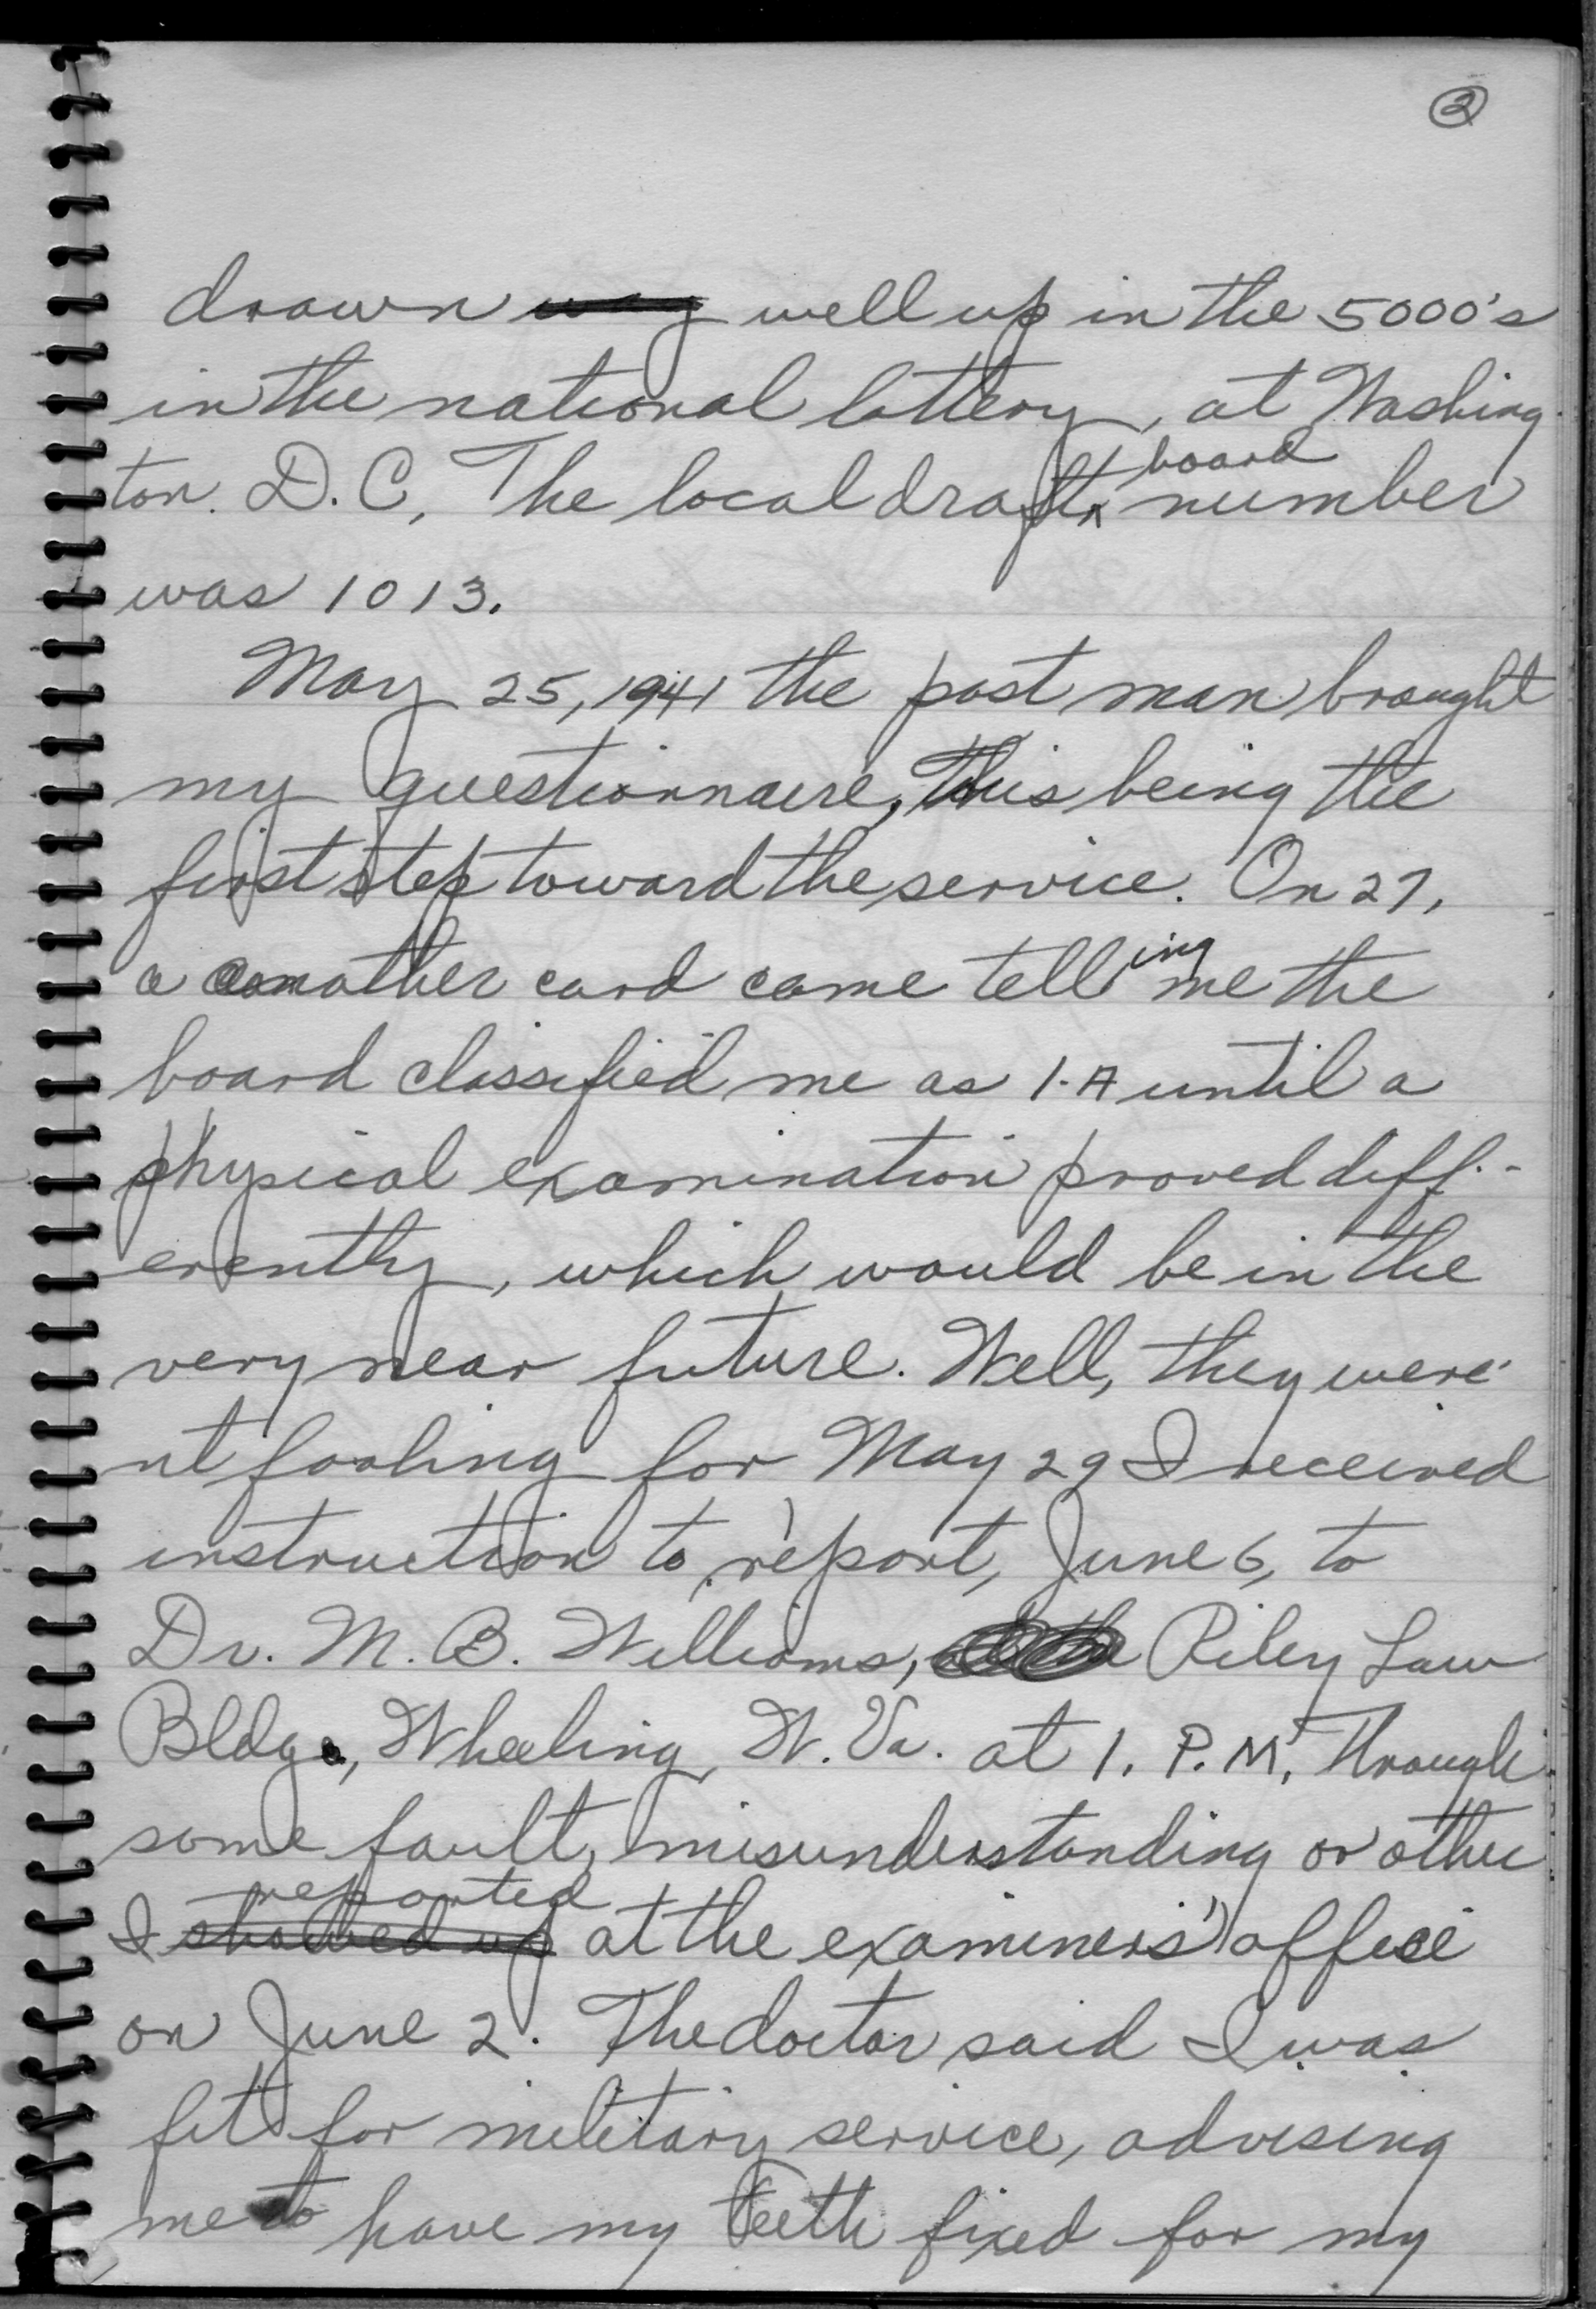 2
drawn way well up in the 5000's
in the national lottery, at Washing-
ton. D.C. The local draft board number
was 1013.
May 25, 1941 the post man brought
my questionnaire, This being the
first step toward the service. On 27,
a another card came telling me the
board classified me as 1-A until a
physical examination proved diff-
erently, which would be in the
very near future. Well, they were'
nt fooling for May 29 I received
instruction to report, June 6, to
Dr. M. B. Williams, Riley Law
Bldg., Wheeling, W. Va. at 1. P.M. Through
some fault, misunderstanding or other
I showed up reported at the examiners' office
on June 2. The doctor said I was
fit for military service, advising
me to have my teeth fixed for my